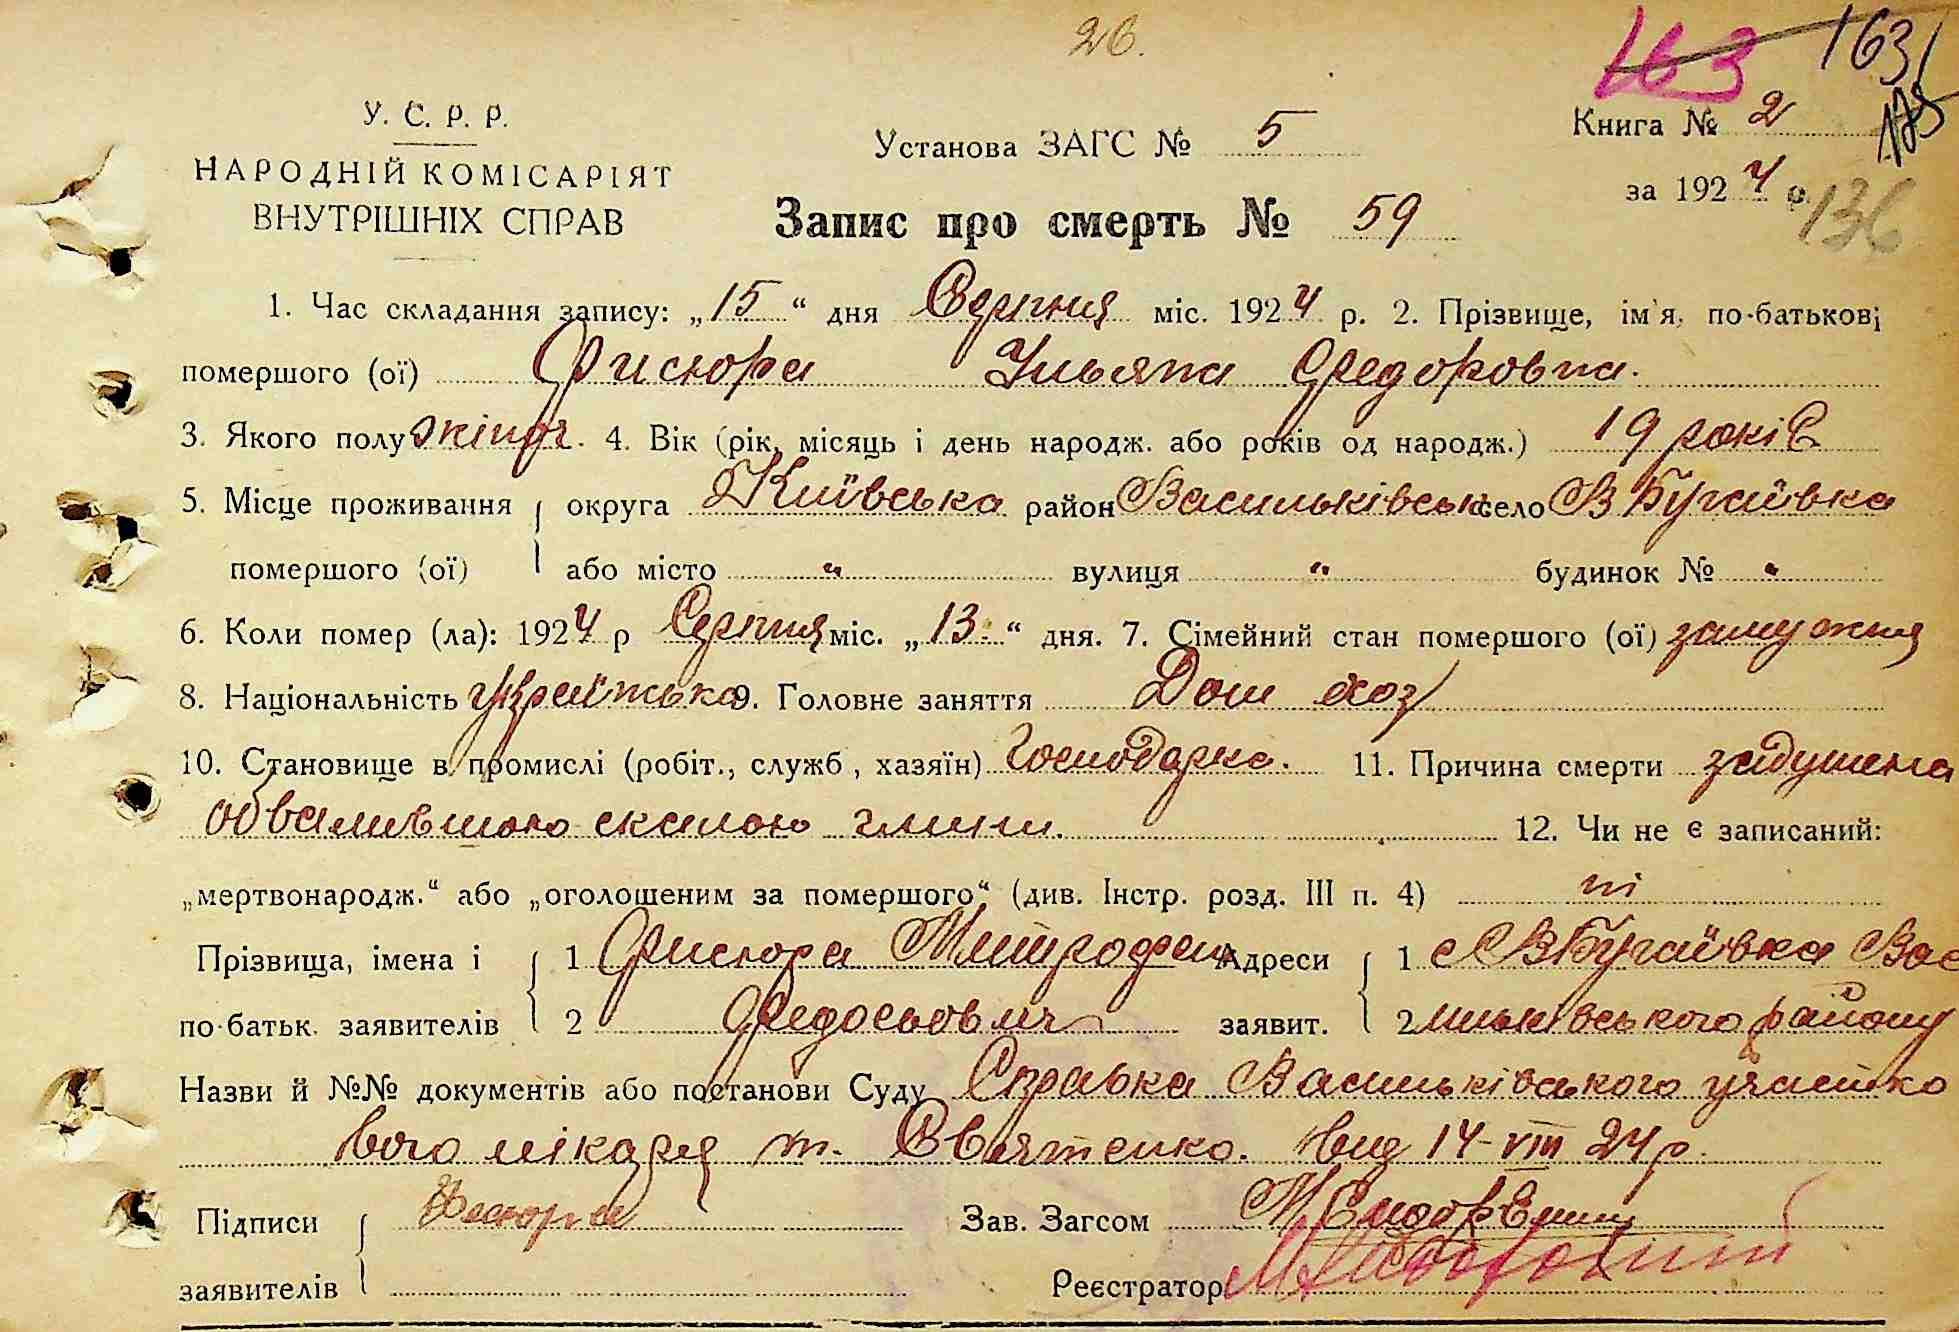 26.
163 163
185
136
У. С. Р. Р.
НАРОДНІЙ КОМІСАРІЯТ
ВНУТРІШНІХ СПРАВ
Установа ЗАГС № 5
Книга № 2
за 1924 р.
Запис про смерть № 59
1. Час складання запису: „15“ дня Серпня міс. 1924 р. 2. Прізвище, ім'я, по-батькові
помершого (ої) Фисюра Ульяна Федоровна.
3. Якого полу жіноч. 4. Вік (рік, місяць і день народж. або років од народж.) 19 років
5. Місце проживання округа Київська район Васильківськ село В Бугаївка
помершого (ої) або місто " вулиця " будинок № "
6. Коли помер (ла): 1924 р Серпня міс. „13“ дня. 7. Сімейний стан помершого (ої) замужня
8. Національність українська 9. Головне заняття Дом хоз
10. Становище в промислі (робіт., служб, хазяїн) Господарка. 11. Причина смерти задушена
обвалившою скалою глини. 12. Чи не є записаний:
„мертвонародж.“ або „оголошеним за помершого“ (див. Інстр. розд. III п. 4) ні
Прізвища, імена і 1 Фисюра Митрофан Адреси 1 с В Бугаївка Вас
по-батьк. заявителів 2 Федосьович заявит. 2 ильківського району
Назви й №№ документів або постанови Суду Справка Васильківського участко
вого лікаря т. Святенко. від 14-VIII 24 р.
Підписи Фисюра Зав. Загсом
заявителів Реєстратор